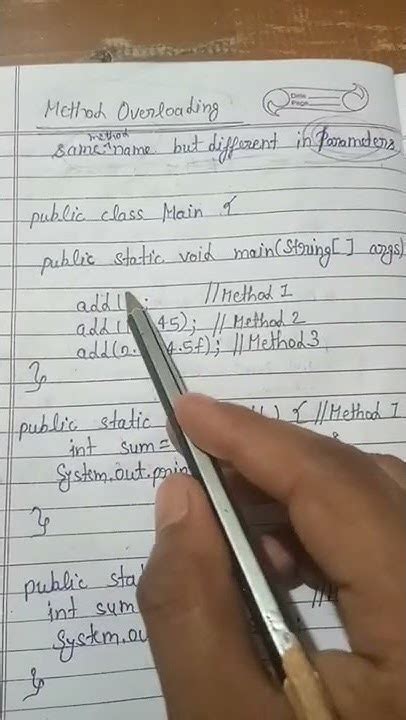 Method Overloading
Date
Page
method
same name but different in Parameters
public class Main {
public static void main(String[] args)
add( ; //Method 1
add( 45); // Method 2
add(2. 4.5f); //Method 3
}
public static ) { //Method 1
int sum=
System.out.prin
}
public sta
int sum
System.ou
}